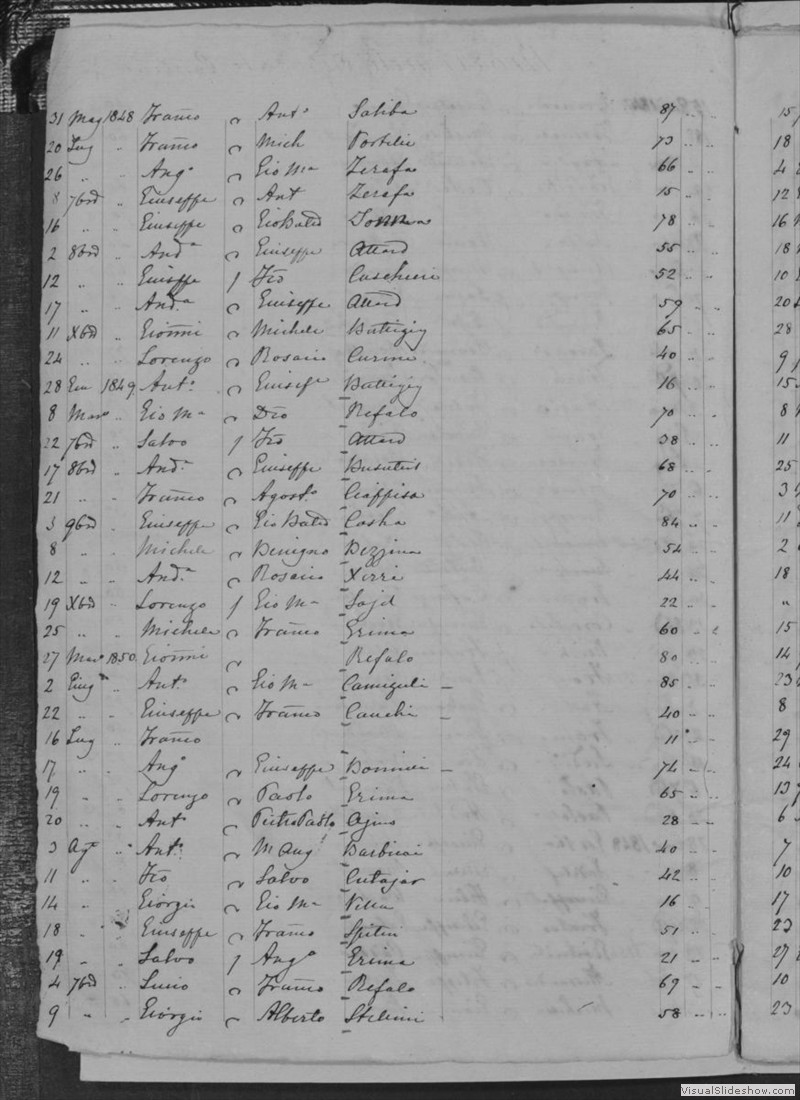 31 Mag 1848 Franco Ant° Saliba 87 .. ..
20 Lug .. Franco Mich Portelli 73 .. ..
26 .. .. Ang° Gio Ma Zerafa 66 .. ..
8 7brd .. Giuseppe Ant Zerafa 15 .. ..
16 .. .. Giuseppe Gio Batta 78 .. ..
2 8brd .. Anda Giuseppe Attard 55 .. ..
12 .. .. Giuseppe Fco Caschieri 52 .. ..
17 .. .. Anda Giuseppe Attard 59 .. ..
11 Xbrd .. Gionni Michele Buttigieg 65 .. ..
24 .. .. Lorenzo Rosario Curmi 40 .. ..
28 Gen 1849 Ant° Giuseppe Buttigieg 16 .. ..
8 Marzo .. Gio Ma Dco Refalo 70 .. ..
22 7brd .. Salvo Fco Attard 38 .. ..
17 8brd .. Anda Giuseppe Busuttil 68 .. ..
21 .. .. Franco Agosto Ciappisa 70 .. ..
3 9brd .. Giuseppe Gio Batta Casha 84 .. ..
8 .. .. Michele Benigno Bezzina 54 .. ..
12 .. .. Anda Rosario Xerri 44 .. ..
19 Xbrd .. Lorenzo Gio Ma Sajd 22 .. ..
25 .. .. Michele Franco Grima 60 .. ..
27 Marzo 1850 Gionni Refalo 80 .. ..
2 Giug .. Ant° Gio Ma Camiguli 85 .. ..
22 .. .. Giuseppe Franco Cauchi 40 .. ..
16 Lug .. Franco 11 .. ..
17 .. .. Ang° Giuseppe Bonnici 74 .. ..
19 .. .. Lorenzo Paolo Grima 65 .. ..
20 .. .. Ant° Pietro Paolo Agius 28 .. ..
3 Ag° .. Ant° M Ang° 40 .. ..
11 .. .. Fco Salvo Cutajar 42 .. ..
14 .. .. Giorgio Gio Ma Vella 16 .. ..
18 .. .. Giuseppe Franco Spiteri 51 .. ..
19 .. .. Salvo Ang° Grima 21 .. ..
4 7brd .. Franco Refalo 69 .. ..
9 .. .. Giorgio Alberto 58 .. ..
15
18
4
12
16
18
10
20
28
9
15
8
11
25
3
11
2
18
15
14
23
8
29
24
13
6
7
10
17
23
27
10
23
VisualSlideshow.com